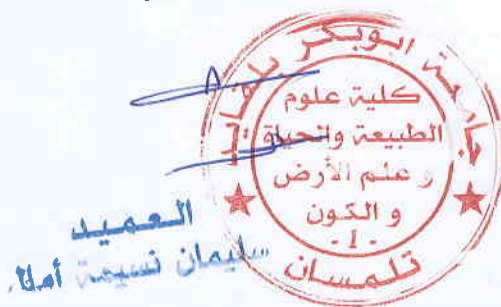 جامعة ابوبكر بلقايد
كلية علوم
الطبيعة والحياة
و علم الأرض
و الكون
- I -
تلمسان
العميد
سليمان نسيمة